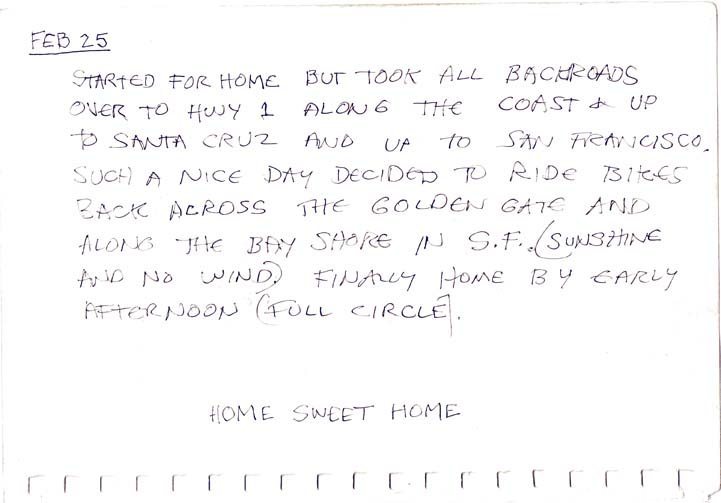 FEB 25
STARTED FOR HOME BUT TOOK ALL BACKROADS
OVER TO HWY 1 ALONG THE COAST & UP
TO SANTA CRUZ AND UP TO SAN FRANCISCO.
SUCH A NICE DAY DECIDED TO RIDE BIKES
BACK ACROSS THE GOLDEN GATE AND
ALONG THE BAY SHORE IN S.F. (SUNSHINE
AND NO WIND) FINALLY HOME BY EARLY
AFTERNOON (FULL CIRCLE).
HOME SWEET HOME